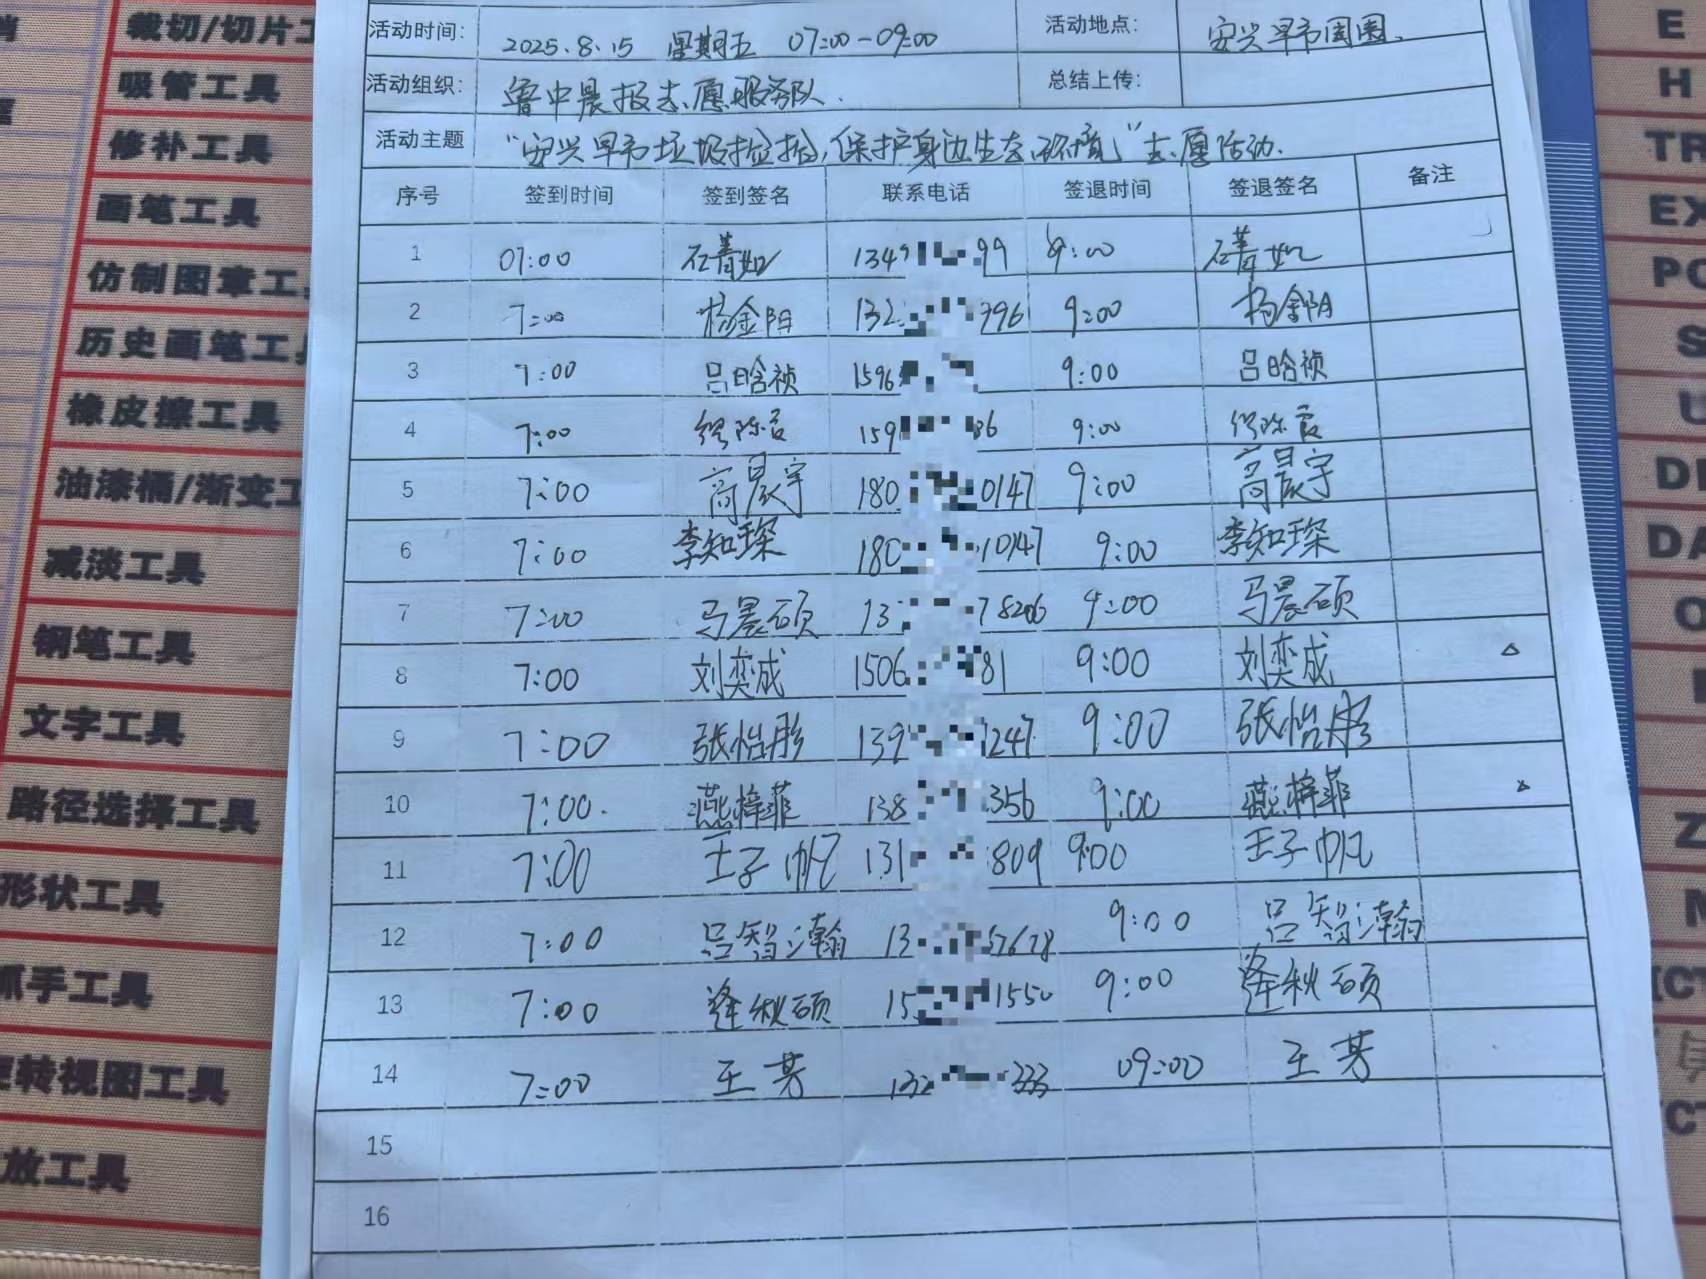 裁切/切片工
吸管工具
修补工具
画笔工具
仿制图章工
历史画笔工
橡皮擦工具
油漆桶/渐变工
减淡工具
钢笔工具
文字工具
路径选择工具
形状工具
抓手工具
旋转视图工具
放工具
活动时间: 2025.8.15 星期五 07:00-09:00 活动地点: 安兴早市周围.
活动组织: 鲁中晨报志愿服务队. 总结上传:
活动主题 "安兴早市垃圾捡拾,保护身边生态环境"志愿活动.
序号 签到时间 签到签名 联系电话 签退时间 签退签名 备注
1 07:00 石菁如 1349 99 9:00 石菁如
2 7:00 杨金阳 132 396 9:00 杨金阳
3 7:00 吕晗祯 1596 9:00 吕晗祯
4 7:00 159 86 9:00
5 7:00 高晨宇 180 0147 9:00 高晨宇
6 7:00 李知琛 180 10147 9:00 李知琛
7 7:00 马晨硕 13 78206 9:00 马晨硕
8 7:00 刘奕成 1506 81 9:00 刘奕成 △
9 7:00 张怡彤 139 1247 9:00 张怡彤
10 7:00. 燕梓菲 138 356 9:00 燕梓菲
11 7:00 王子帆 131 809 9:00 王子帆
12 7:00 吕智瀚 13 57678 9:00 吕智瀚
13 7:00 逄秋硕 15 1550 9:00 逄秋硕
14 7:00 王芳 132 333 09:00 王芳
15
16
E
H
TR
EX
PO
S
U
DI
DA
O
Z
N